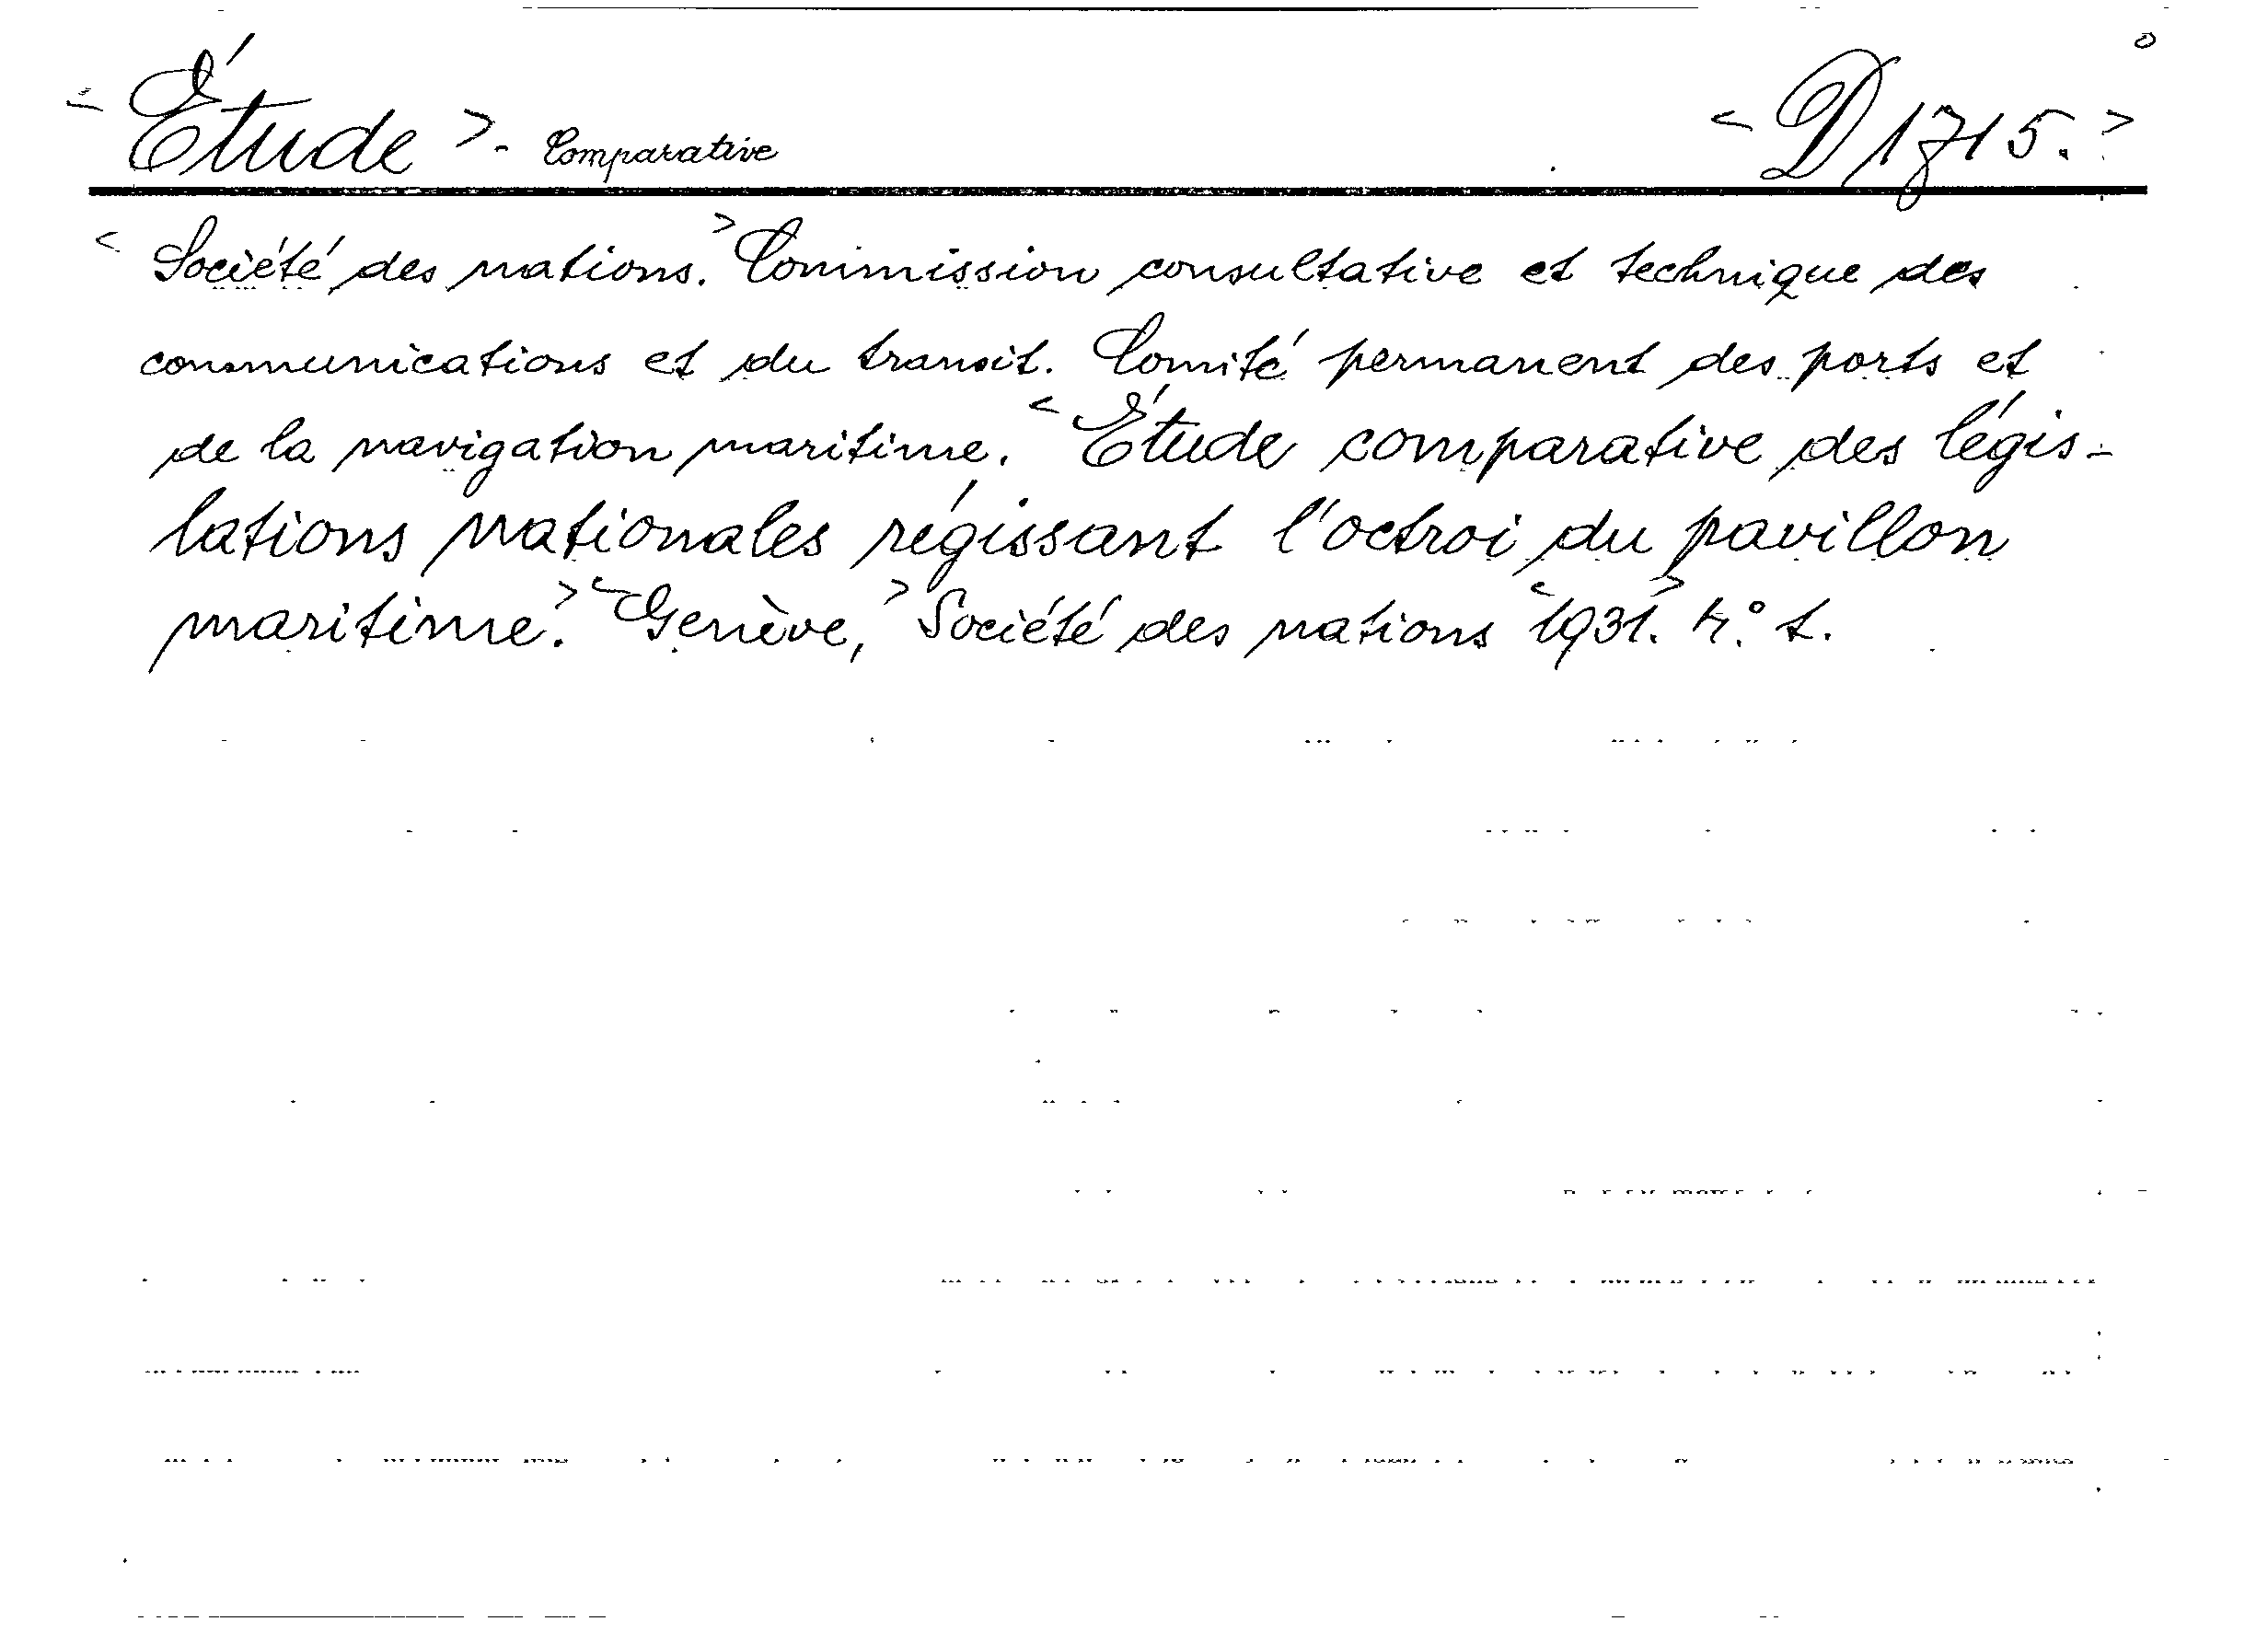 < Étude >. Comparative < D 1715. >
< Société des nations. > Commission consultative et technique des
communications et du transit. Comité permanent des ports et
de la navigation maritime. < Étude comparative des légis-
lations nationales régissant l'octroi du pavillon
maritime. > < Genève, > Société des nations < 1931. > 4.° t.